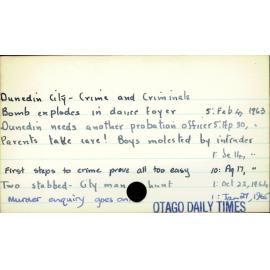 Dunedin City - Crime and Criminals
Bomb explodes in dance foyer 5: Feb 4, 1963
Dunedin needs another probation officer 5: Ap 30, "
Parents take care! Boys molested by intruder
1: Je 14, "
First steps to crime prove all too easy 10: Ag 17, "
Two stabbed - City man hunt 1: Oct 23, 1964
Murder enquiry goes on 1: Jan 21, 1965
OTAGO DAILY TIMES